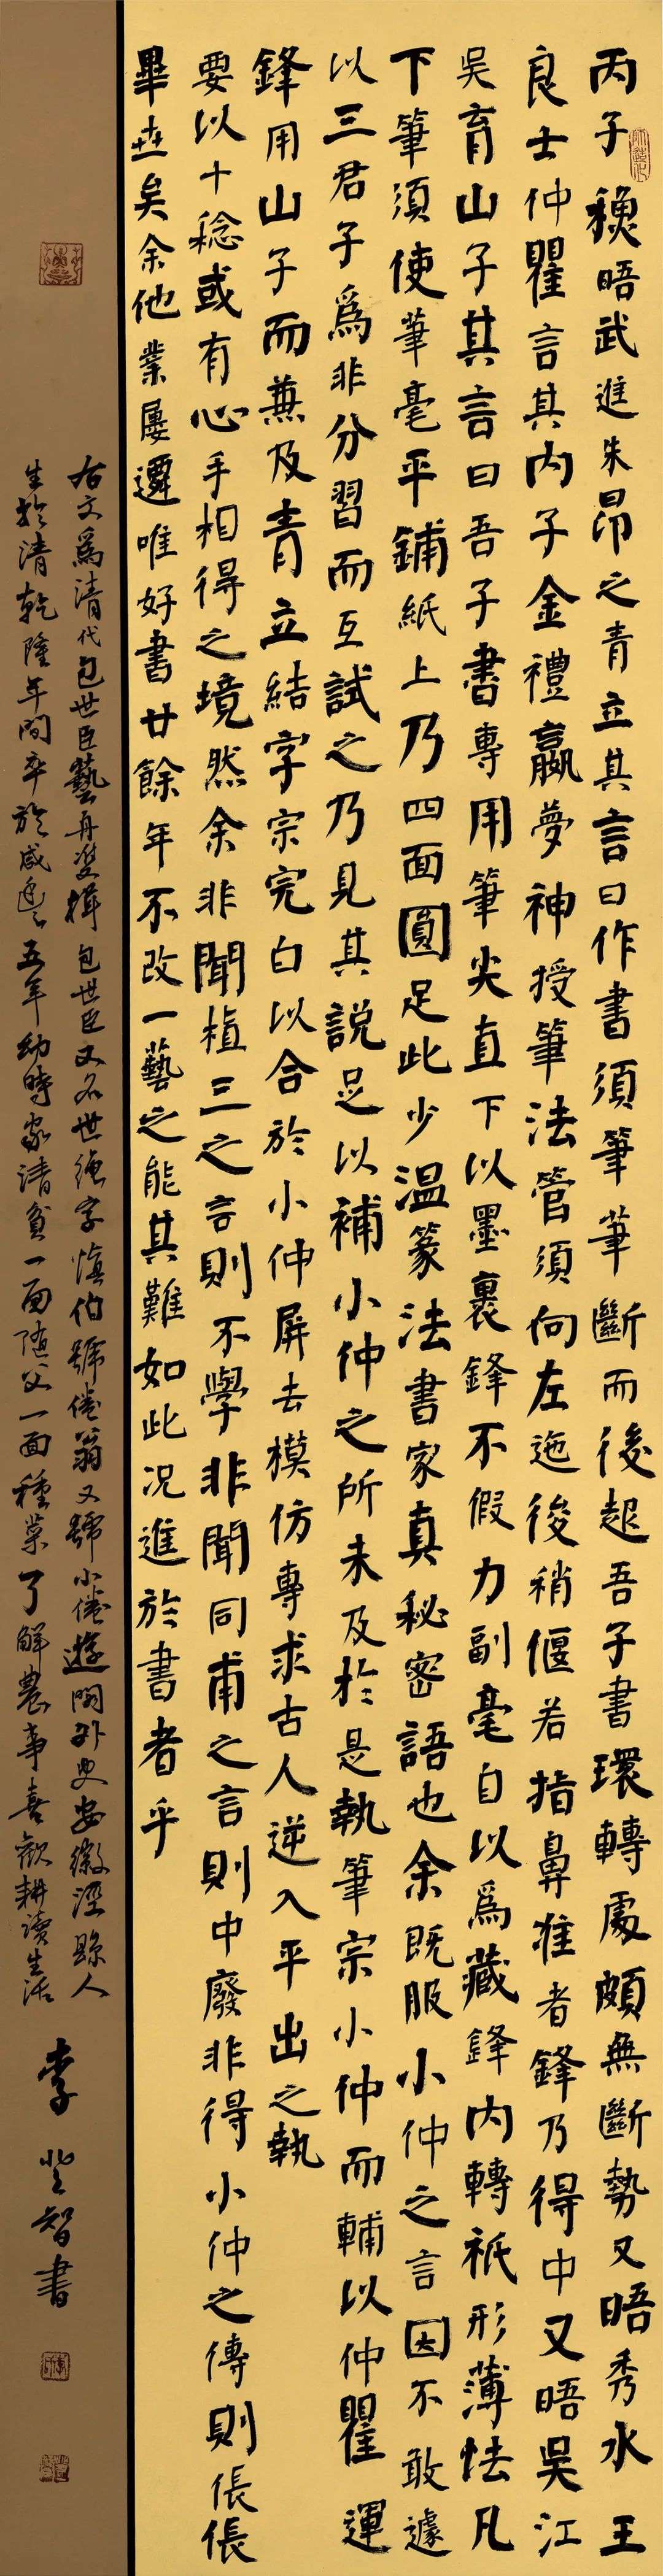 丙子穐晤武進朱昂之青立其言曰作書須筆筆斷而後起吾子書環轉處頗無斷勢又晤秀水王
良士仲瞿言其內子金禮嬴夢神授筆法管須向左迤後稍偃若指鼻準者鋒乃得中又晤吳江
吳育山子其言曰吾子書專用筆尖直下以墨裹鋒不假力副毫自以爲藏鋒內轉祇形薄怯凡
下筆須使筆毫平鋪紙上乃四面圓足此少溫篆法書家真秘密語也余既服小仲之言因不敢遽
以三君子爲非分習而互試之乃見其說足以補小仲之所未及於是執筆宗小仲而輔以仲瞿運
鋒用山子而兼及青立結字宗完白以合於小仲屏去模仿專求古人逆入平出之執
要以十稔或有心手相得之境然余非聞植三之言則不學非聞同甫之言則中廢非得小仲之傳則倀倀
畢世矣余他業屢遷唯好書廿餘年不改一藝之能其難如此況進於書者乎
右文爲清代包世臣藝舟雙楫包世臣又名世綎字慎伯號倦翁又號小倦遊閣外史安徽涇縣人
生於清乾隆年間卒於咸豐五年幼時家清貧一面隨父一面種菜了解農事喜歡耕讀生活
李登智書